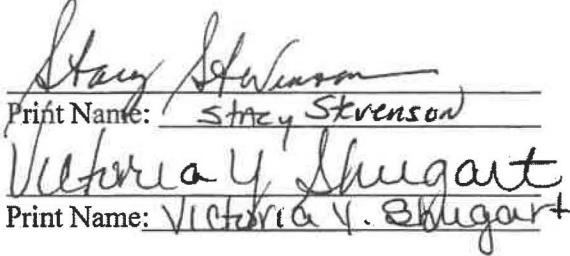 Stacy Stevenson
Print Name: Stacy Stevenson
Victoria Y Shugart
Print Name: Victoria Y. Shugart